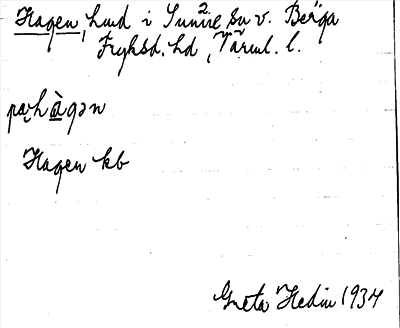 Hagen, hmd i Sunne sn v. Berga
Fryksd. hd, Värml. l.
pạhàgən
Hagen kb
Greta Hedin 1934